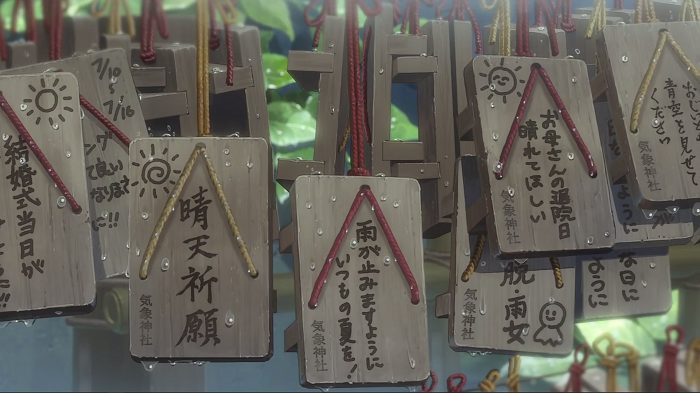 結婚式当日が
7/10
〜7/16
気象神社
晴天祈願
気象神社
雨が止みますように
いつもの夏を!
気象神社
お母さんの退院日
晴れてほしい
気象神社
脱・雨女
気象神社
青空を見せて
ください
気象神社
な日に
ように